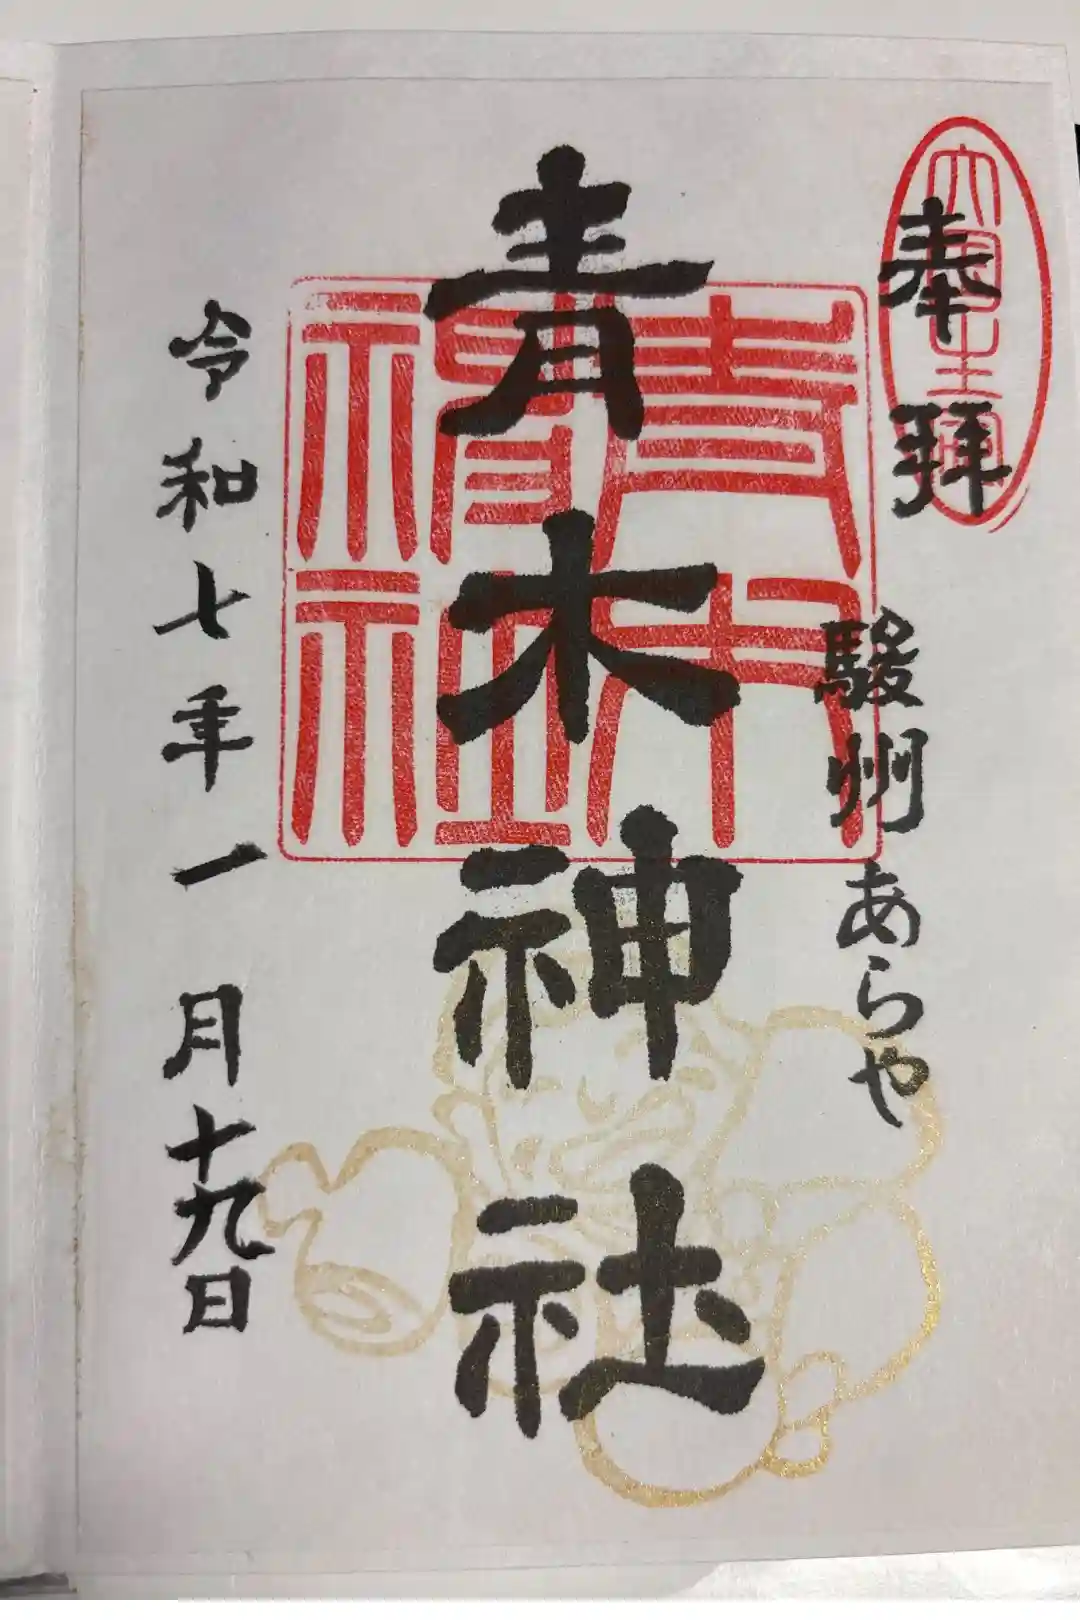 奉拝
駿州あらや
青木神社
令和七年一月十九日
青木
神社